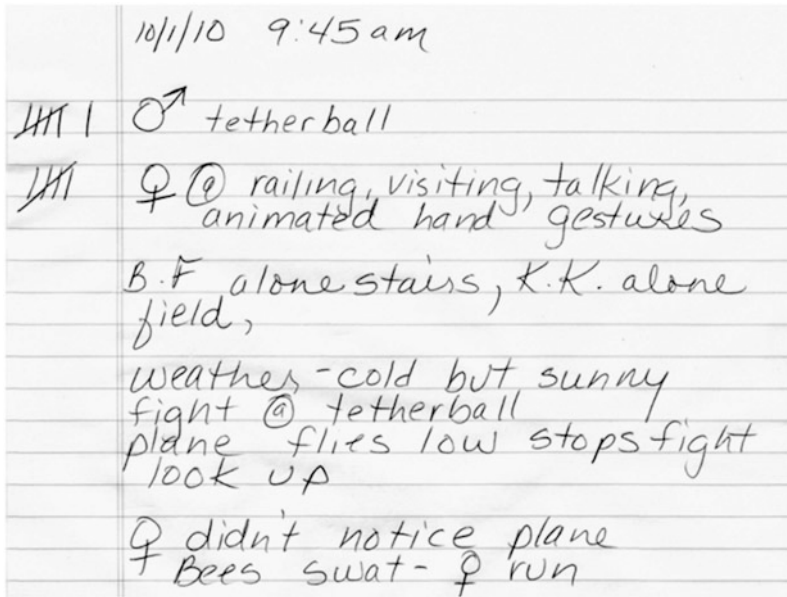 10/1/10 9:45am
𝍸 | ♂ tetherball
𝍸 ♀ @ railing, visiting, talking,
animated hand gestures
B.F alone stairs, K.K. alone
field,
weather - cold but sunny
fight @ tetherball
plane flies low stops fight
look up
♀ didn't notice plane
Bees swat - ♀ run